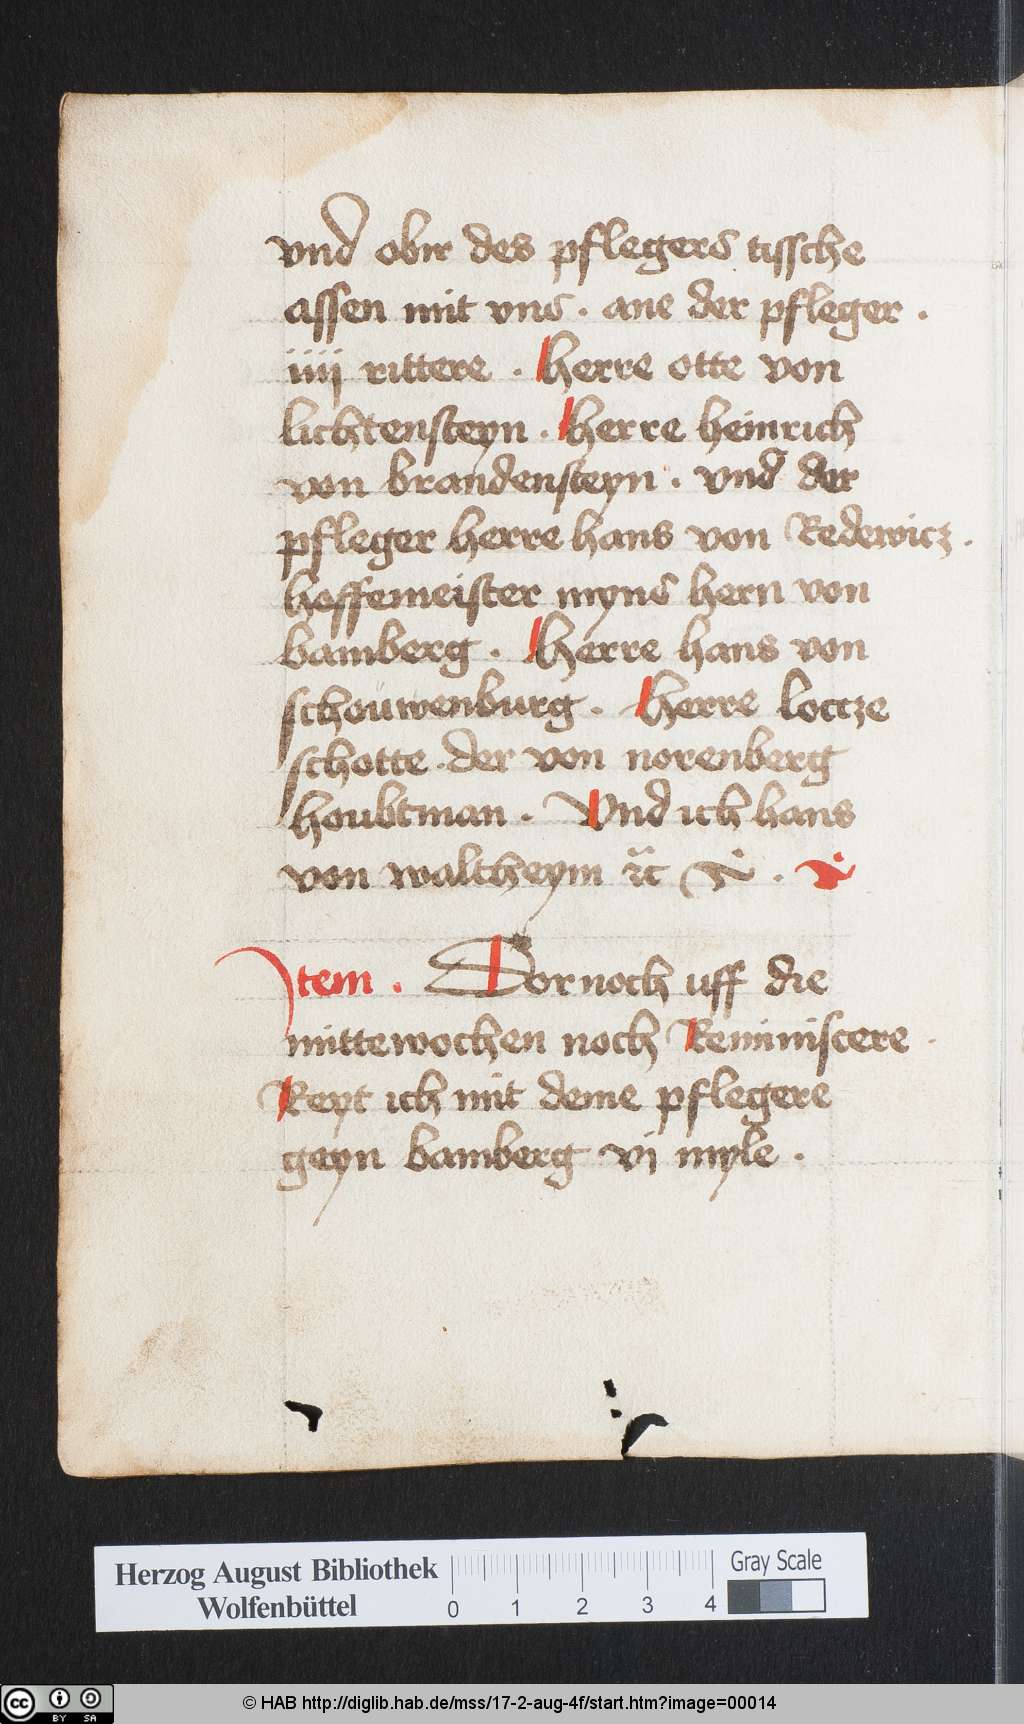 vnd obir des pflegers tissche
assen mit vns . ane der pfleger .
iiij rittere . Herre otte von
lichtensteyn . Herre heinrich
von brandensteyn . vnd der
pfleger herre hans von Redewicz .
hoffemeister myns hern von
bamberg . Herre hans von
schouwenburg . Herre loctze
schotte der von norenberg
houbtman . Vnd ich hans
von waltheym ꝛc
Item . Dornoch uff die
mittewochen noch Reminiscere .
Reyt ich mit deme pflegere
geyn bamberg vi myle .
Herzog August Bibliothek
Wolfenbüttel
0 1 2 3 4
Gray Scale
cc BY SA
© HAB http://diglib.hab.de/mss/17-2-aug-4f/start.htm?image=00014